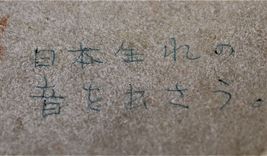 日本生れの
音をれさう。